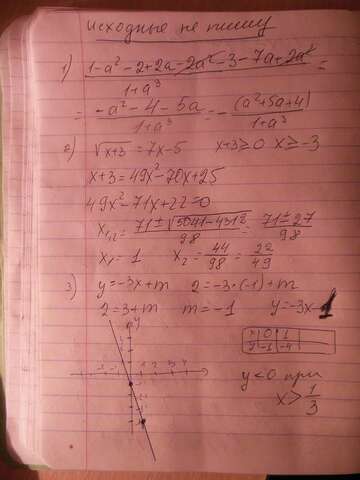 исходные не пишу
1) 1-a²-2+2a-2a²-3-7a+2a² =
1+a³
= -a²-4-5a = - (a²+5a+4)
1+a³ 1+a³
2) √x+3 = 7x-5 x+3≥0 x≥-3
x+3=49x²-70x+25
49x²-71x+22=0
x₁,₂= 71±√5041-4312 = 71±27
98 98
x₁=1 x₂= 44 = 22
98 49
3) y=-3x+m 2=-3·(-1)+m
2=3+m m=-1 y=-3x-1
y
x 0 1
y -1 -4
y<0 при
x> 1
3